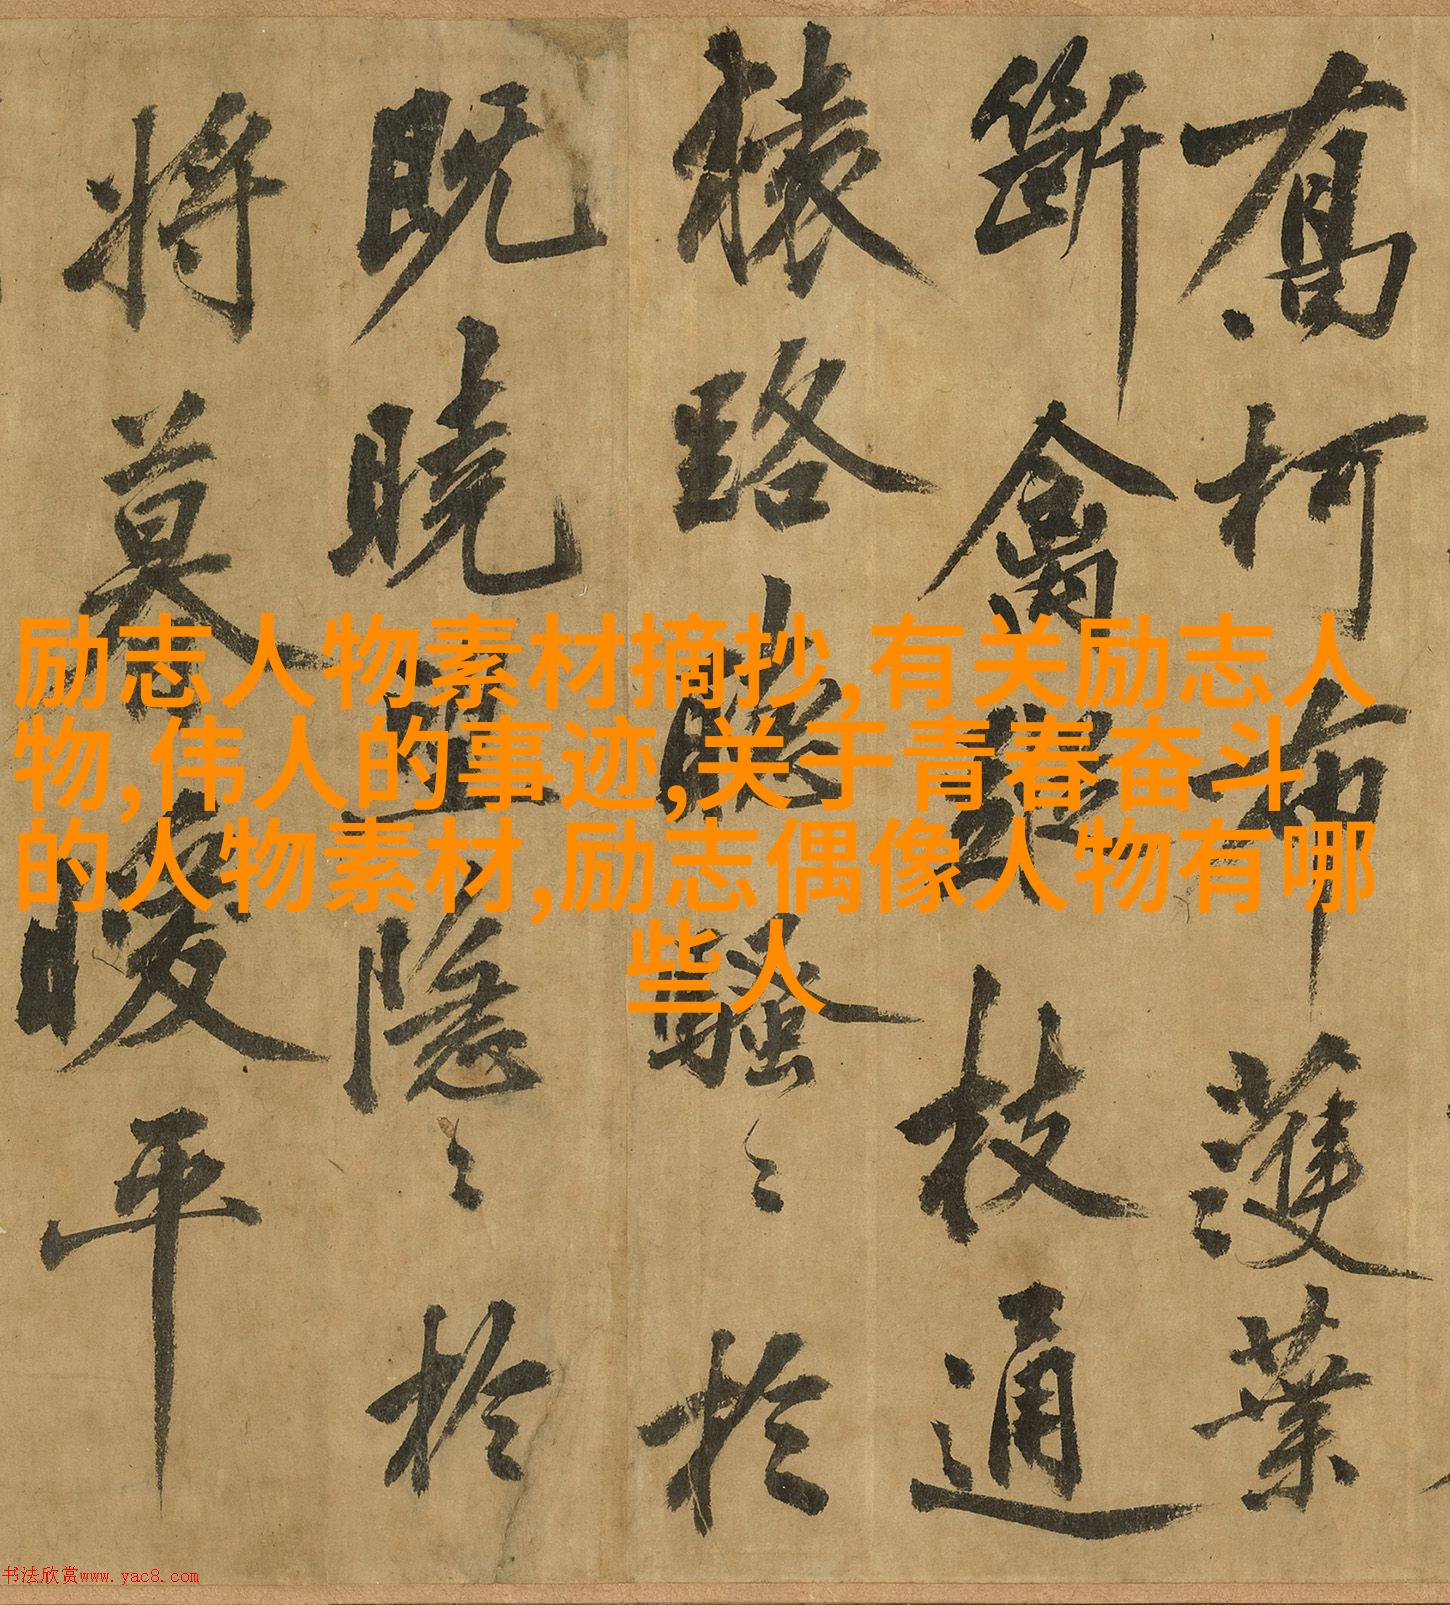 喬柯布濩葉
斷禽蹤枝通
猿路聽騷〻於
既曉望隱〻於
將暮暖平
励志人物素材摘抄,有关励志人
物,伟人的事迹,关于青春奋斗
的人物素材,励志偶像人物有哪
些人
书法欣赏www.yac8.com